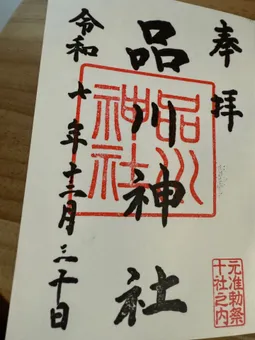 奉拝
品川神社
品川
神社
元准勅祭
十社之内
令和七年十二月三十日